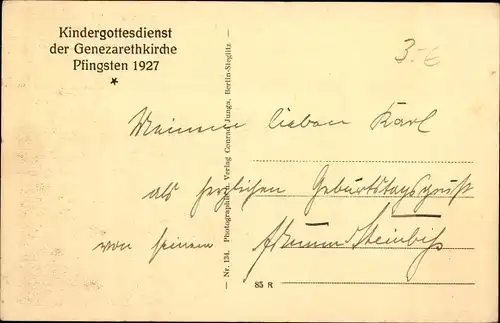 Kindergottesdienst
der Genezarethkirche
Pfingsten 1927
*
3.-€
Meinem lieben Karl
als herzlichen Geburtstagsgruß
von seinem Freund Steinbiß
Nr. 134. Photographischer Verlag Conrad Junga, Berlin-Steglitz
85 R